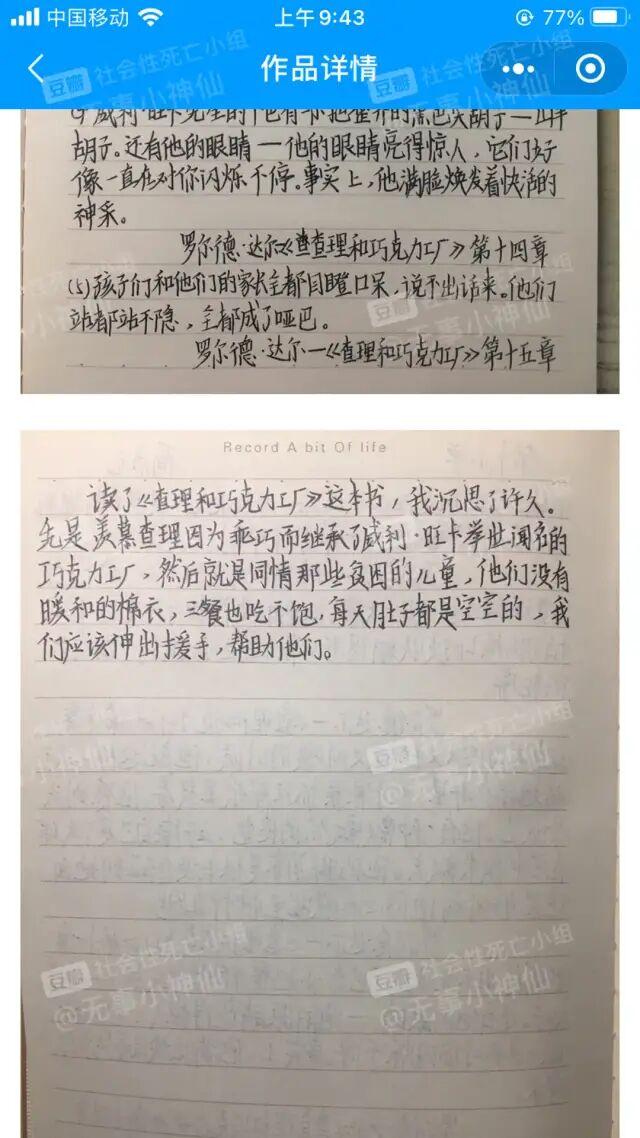 中国移动
上午 9:43
77%
作品详情
豆瓣 社会性死亡小组
@无事小神仙
胡子。还有他的眼睛一他的眼睛亮得惊人，它们好
像一直在对你闪烁不停。事实上，他满脸焕发着快活的
神采。
罗尔德·达尔《查理和巧克力工厂》第十四章
(5)孩子们和他们的家长全都目瞪口呆，说不出话来。他们
站都站不隐，全都成了哑巴。
罗尔德·达尔一《查理和巧克力工厂》第十五章
Record A bit Of life
读了《查理和巧克力工厂》这本书，我沉思了许久。
先是羡慕查理因为乖巧而继承了威利·旺卡举世闻名的
巧克力工厂，然后就是同情那些贫困的儿童，他们没有
暖和的棉衣，三餐也吃不饱，每天肚子都是空空的，我
们应该伸出援手，帮助他们。
豆瓣 社会性死亡小组
@无事小神仙
豆瓣 社会性死亡小组
@无事小神仙